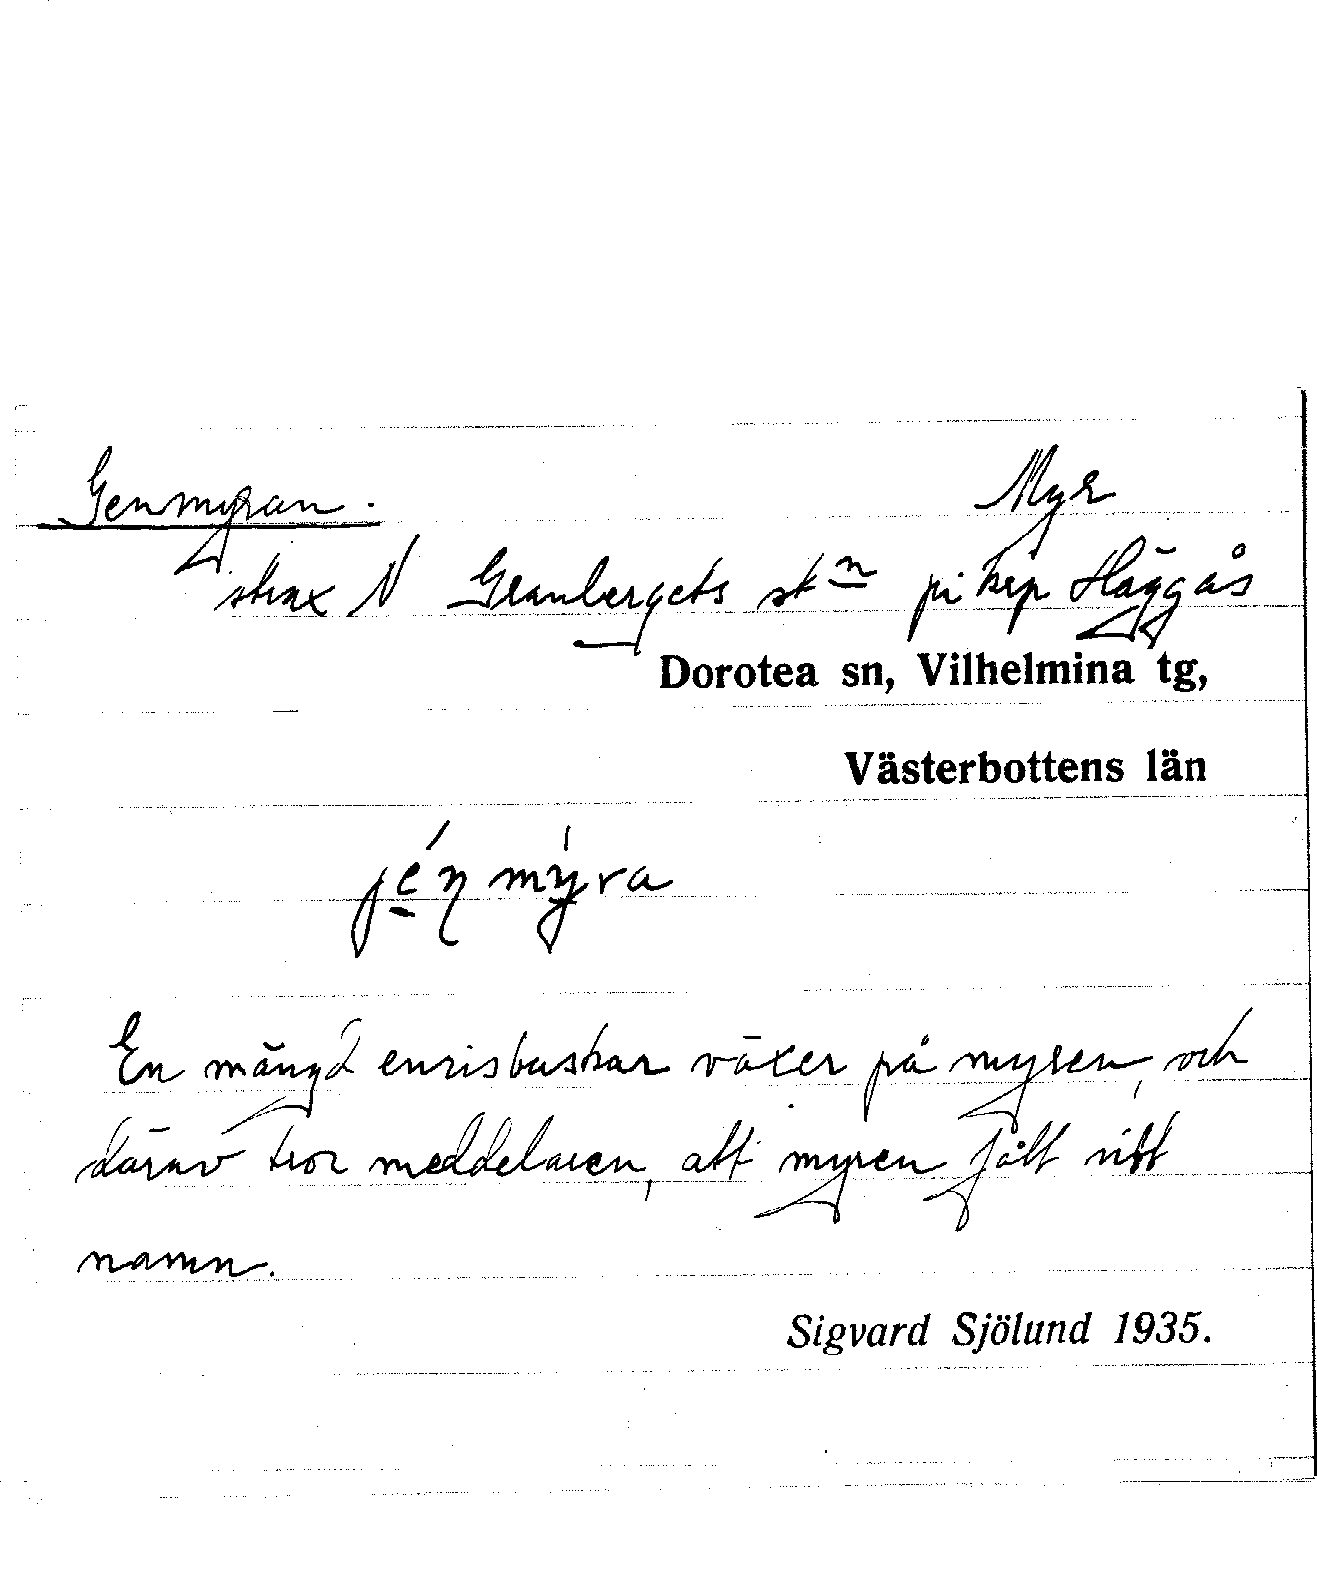 Genmyran. Myr
strax N Granbergets stn på krp Häggås
Dorotea sn, Vilhelmina tg,
Västerbottens län
jén mýra
En mängd enrisbuskar växer på myren, och
därav tror meddelaren, att myren fått sitt
namn.
Sigvard Sjölund 1935.